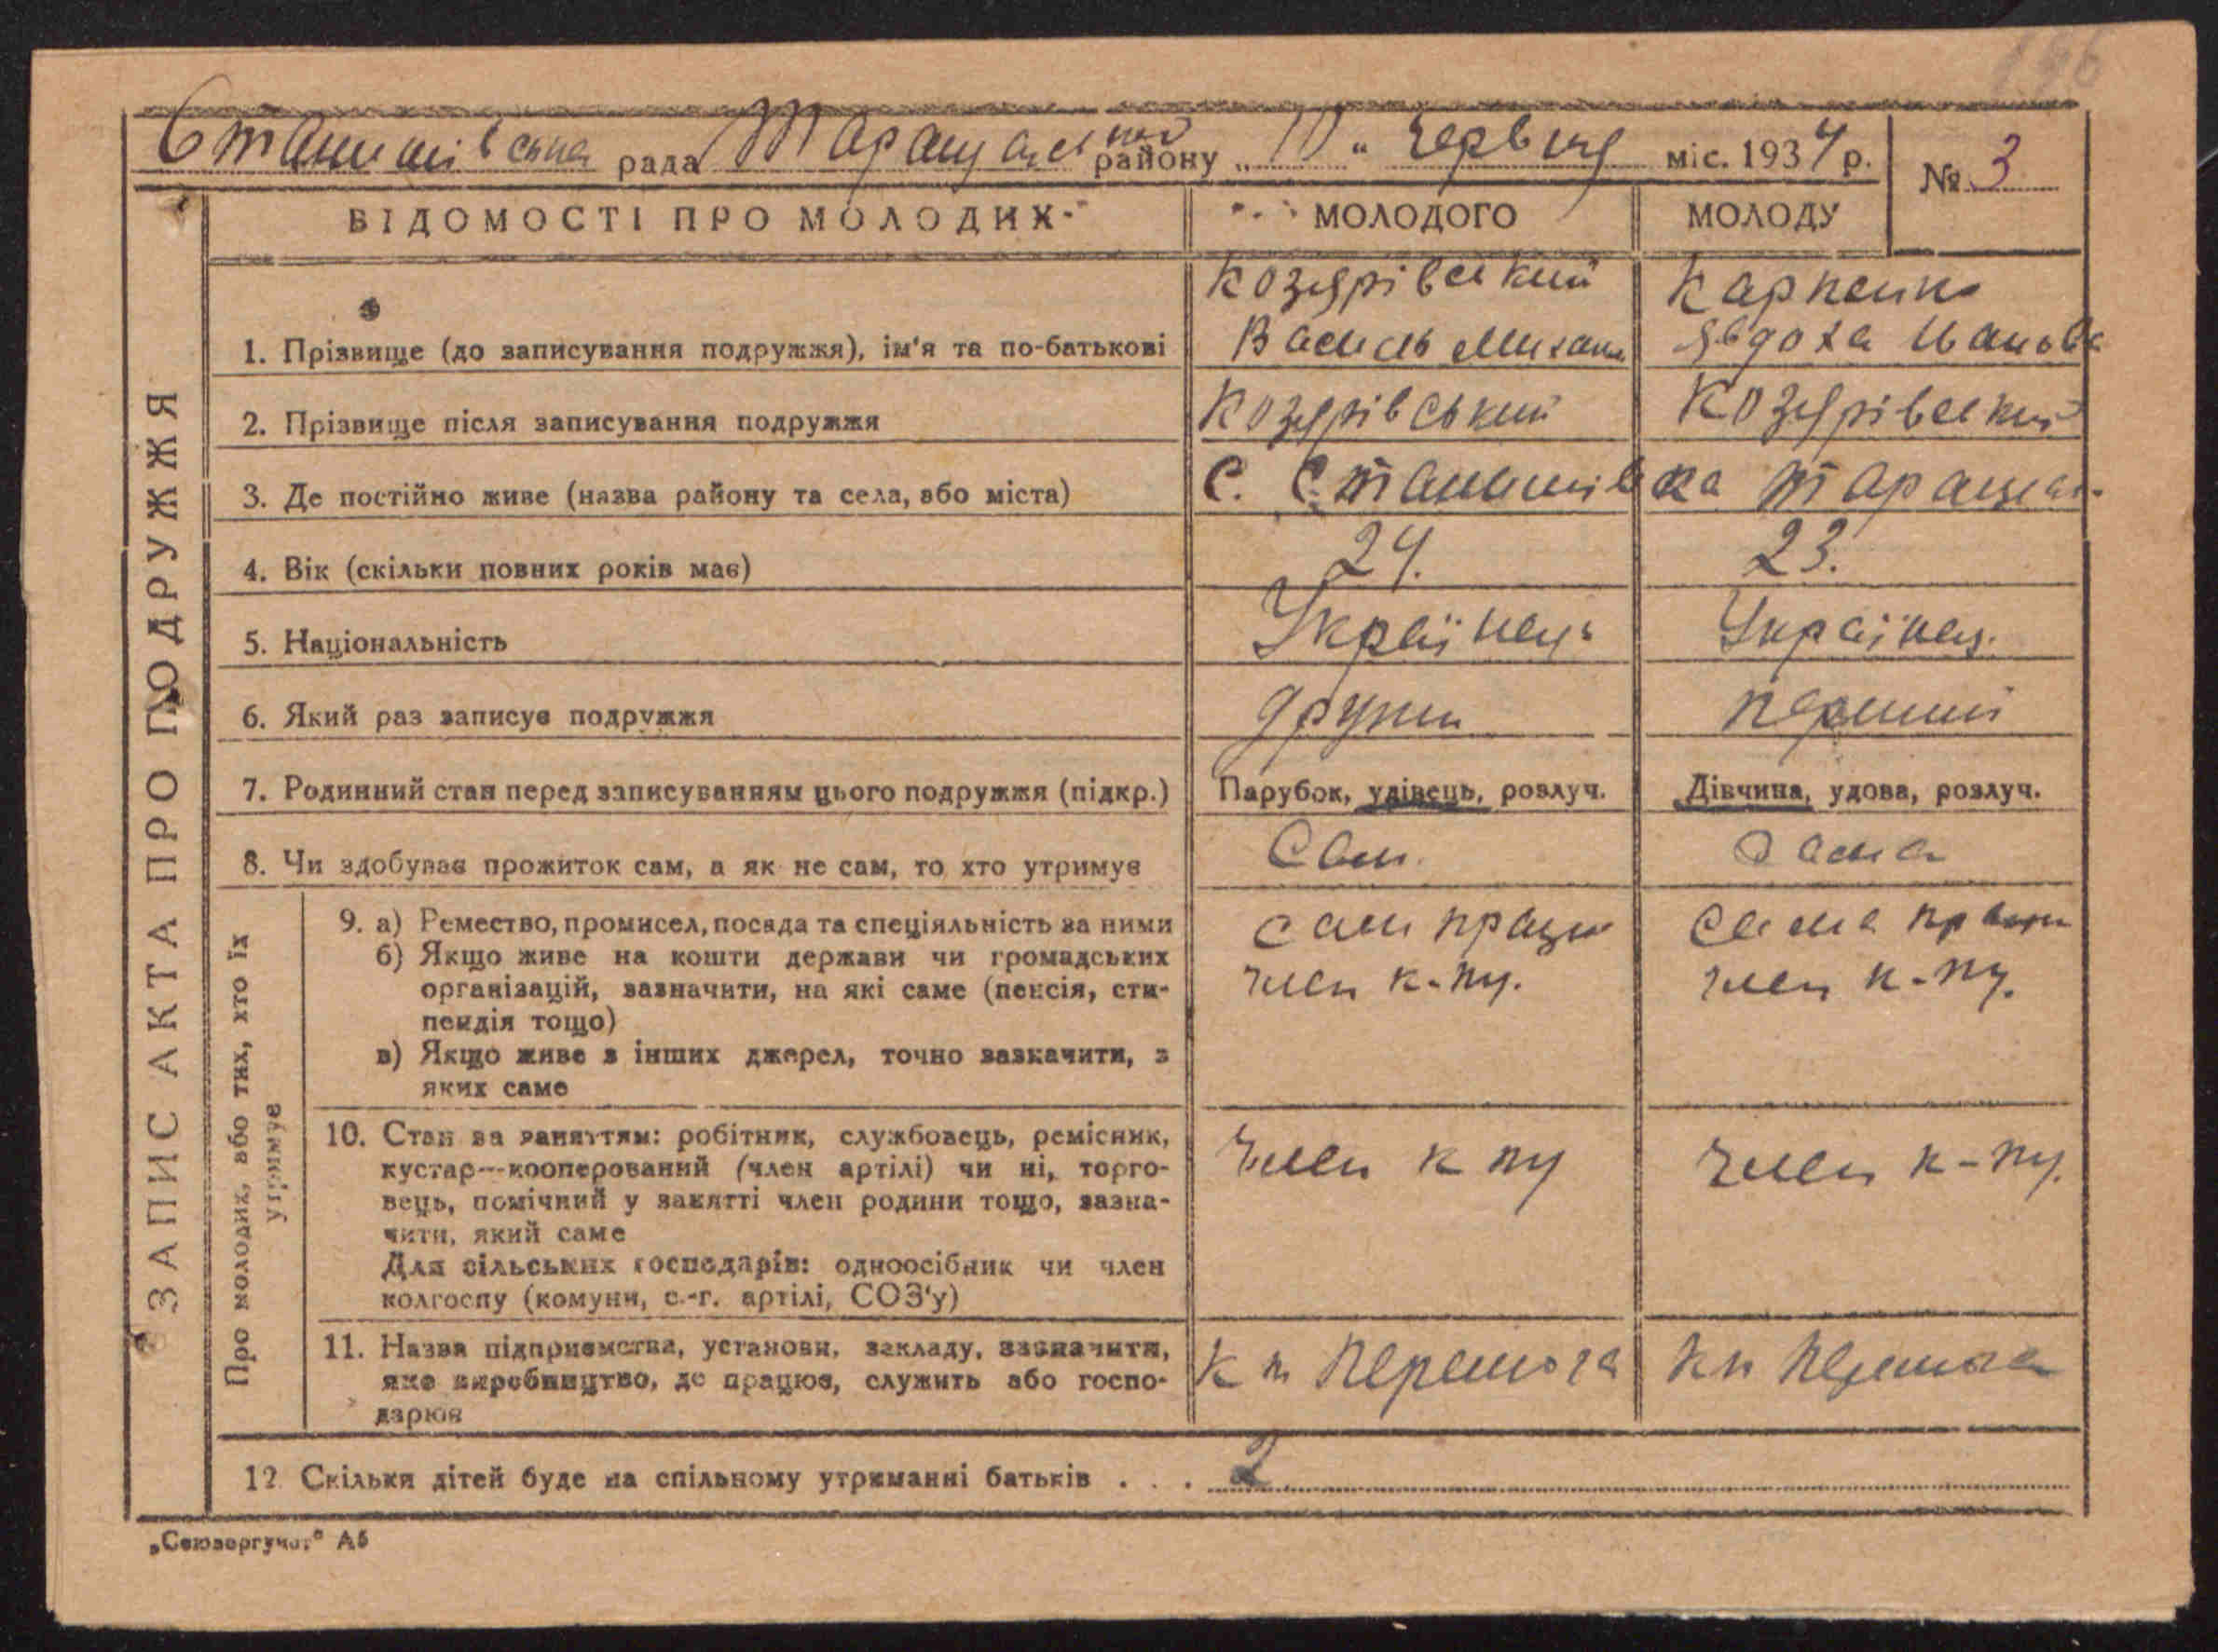 196
Станишівська рада Таращанського району „ 10 " червня міс. 1934 р. № 3
ЗАПИС АКТА ПРО ПОДРУЖЖЯ
ВІДОМОСТІ ПРО МОЛОДИХ МОЛОДОГО МОЛОДУ
Козярівський Карпенко
1. Прізвище (до записування подружжя), ім'я та по-батькові Василь Михайл Явдоха Іванова
2. Прізвище після записування подружжя Козярівський Козярівський
3. Де постійно живе (назва району та села, або міста) С. Станишівка Таращан.
4. Вік (скільки повних років має) 24. 23.
5. Національність Українець Українец.
6. Який раз записує подружжя други перший
7. Родинний стан перед записуванням цього подружжя (підкр.) Парубок, удівець, розлуч. Дівчина, удова, розлуч.
8. Чи здобуває прожиток сам, а як не сам, то хто утримує Сам. Сама
Про молодих, або тих, хто їх
утримує
9. а) Ремество, промисел, посада та спеціяльність за ними сам працю сама працю
б) Якщо живе на кошти держави чи громадських член к-пу. член к-пу.
організацій, зазначити, на які саме (пенсія, сти-
пендія тощо)
в) Якщо живе з інших джерел, точно зазначити, з
яких саме
10. Стан за заняттям: робітник, службовець, ремісник, член к пу член к-пу.
кустар—кооперований (член артілі) чи ні, торго-
вець, помічний у занятті член родини тощо, зазна-
чити, який саме
Для сільських господарів: одноосібник чи член
колгоспу (комуни, с.-г. артілі, СОЗ'у)
11. Назва підприємства, установи, закладу, зазначити, К п Перемога Кп Перемога
яке виробництво, де працює, служить або госпо-
дарює
12. Скільки дітей буде на спільному утриманні батьків . . . 2
„Союзоргучот" А5